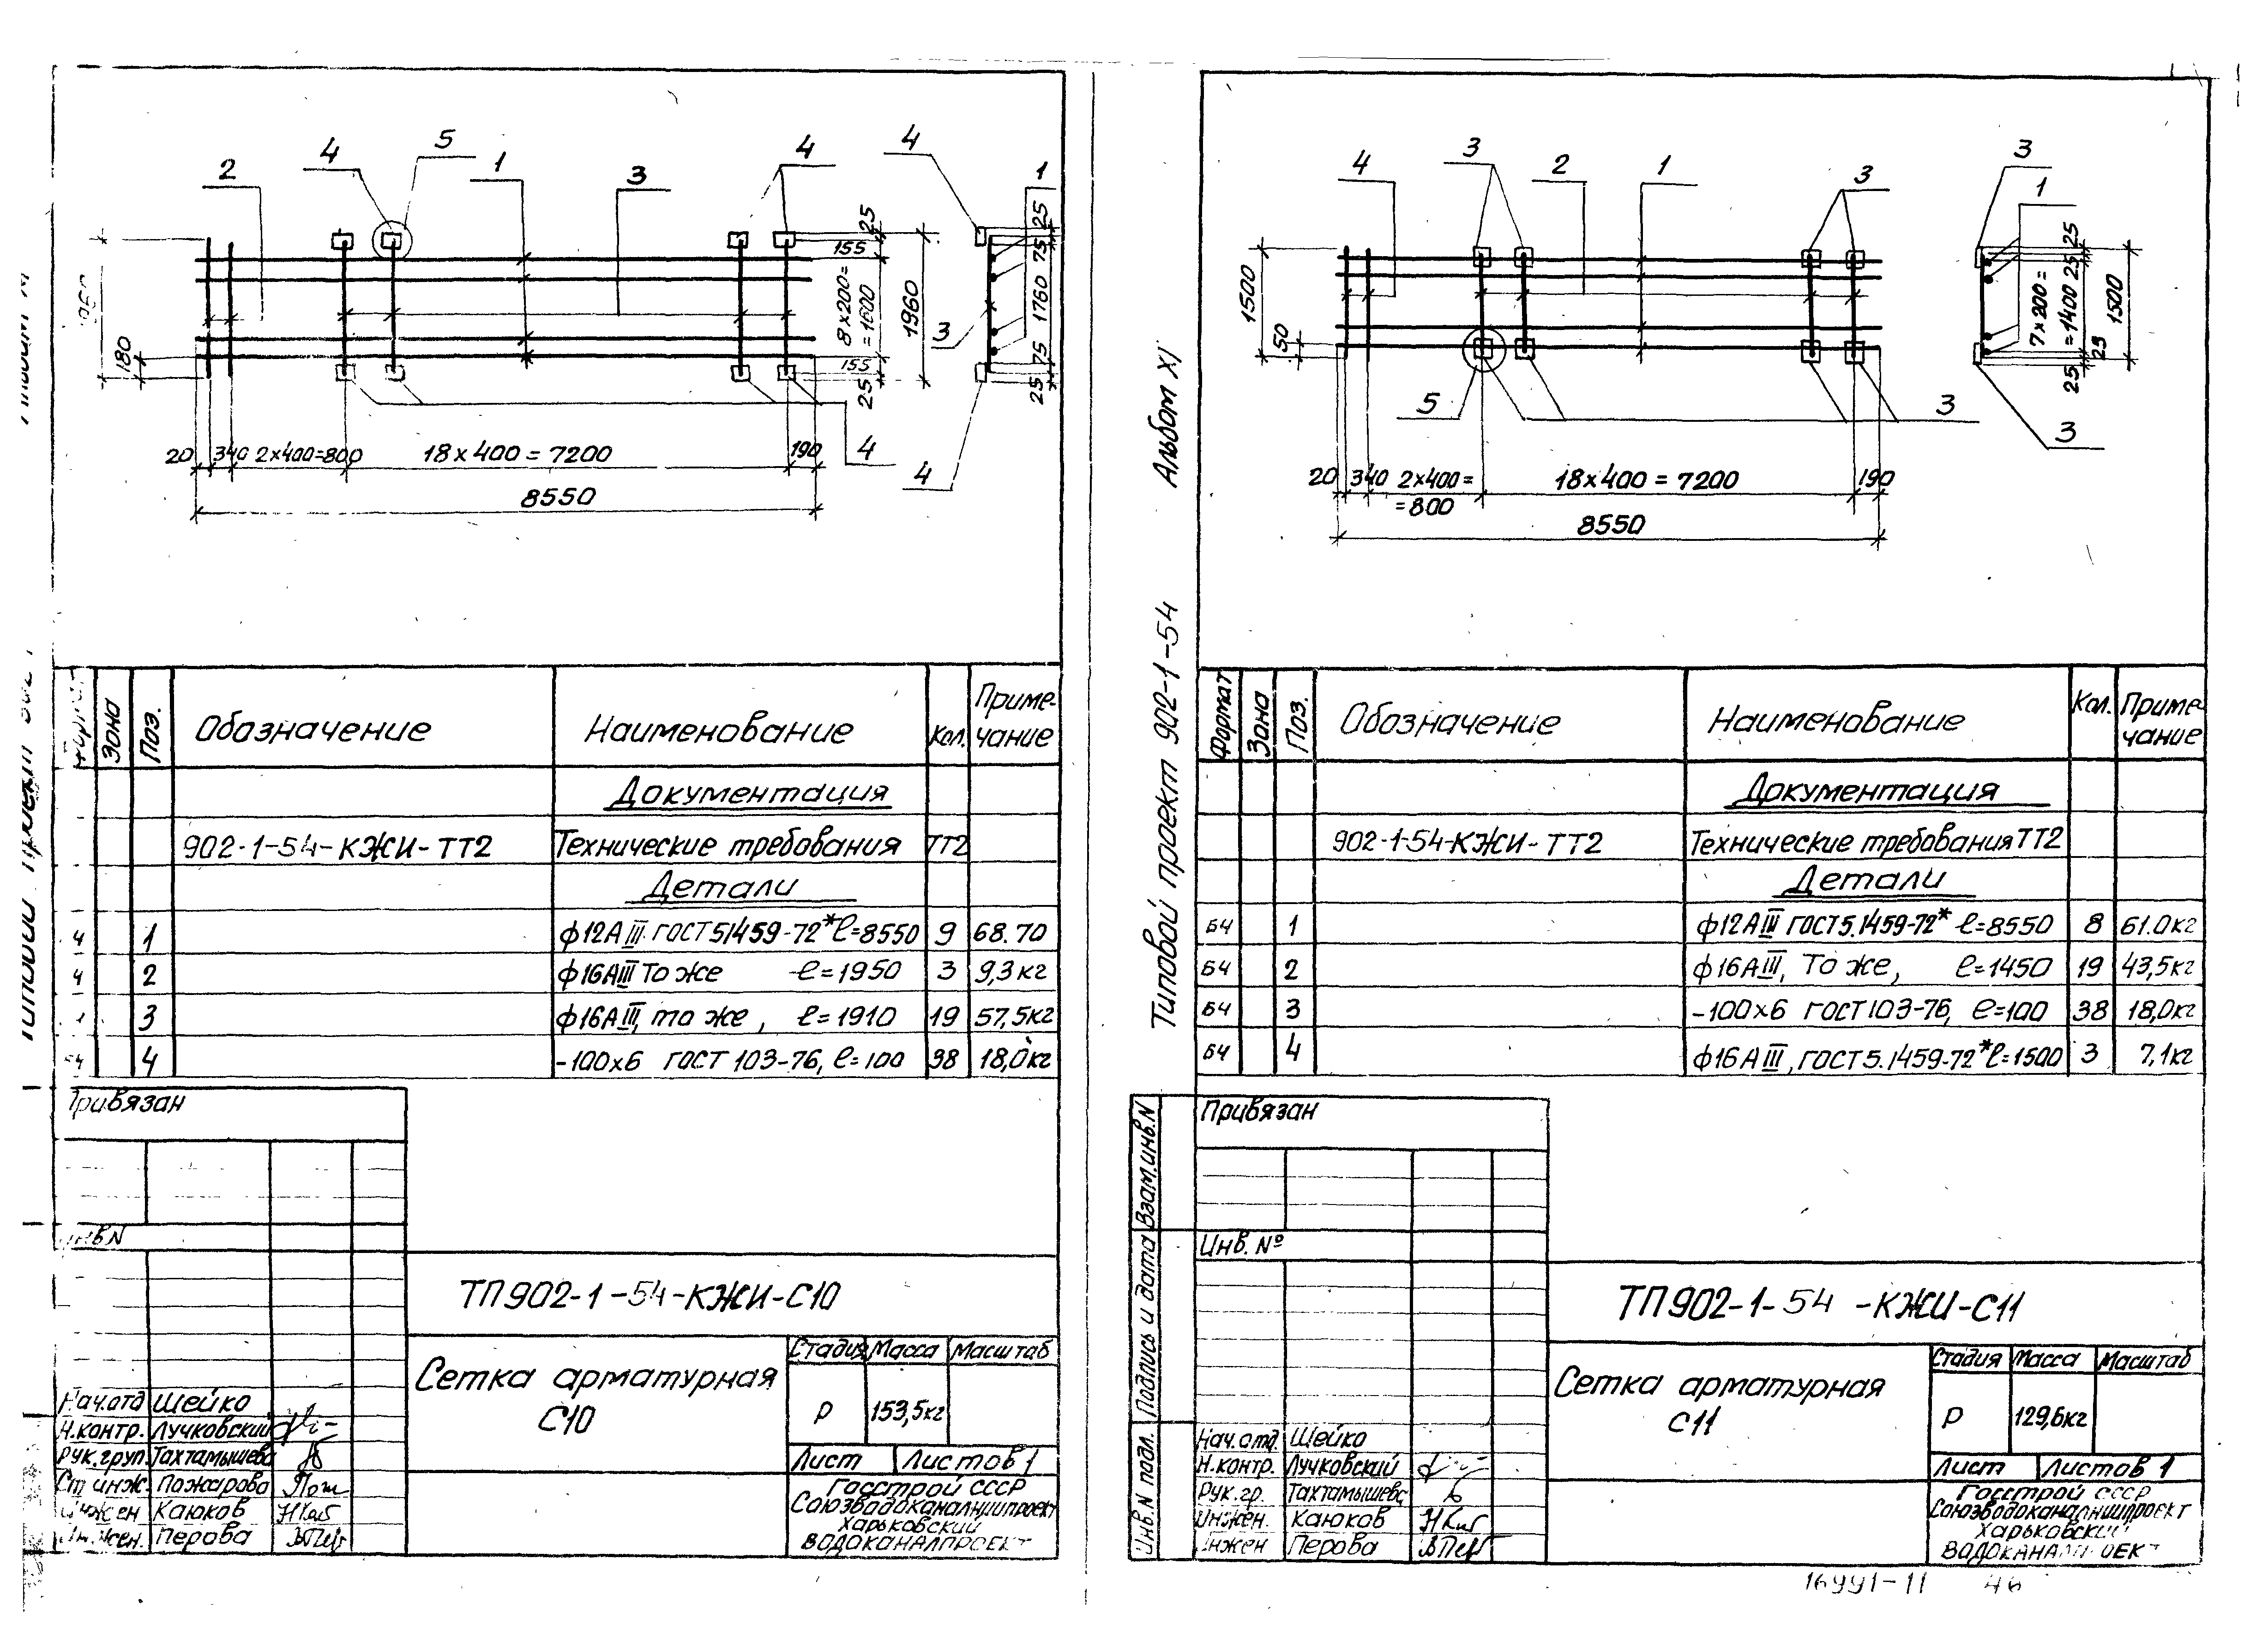 5
4
4
4
2
1
3
1
25
155
8×200=
=1600
155
25
1960
25
75
1760
75
25
3
180
4
4
20
340
2×400=800
18×400=7200
190
8550
Зона
Поз.
Обозначение
Наименование
Кол.
Приме-
чание
Документация
902-1-54-КЖИ-ТТ2
Технические требования ТТ2
Детали
4 1 ф12АIII ГОСТ51459-72* ℓ=8550 9 68.70
4 2 ф16АIII То же ℓ=1950 3 9,3кг
3 ф16АIII, то же, ℓ=1910 19 57,5кг
4 -100×6 ГОСТ 103-76, ℓ=100 38 18,0кг
Привязан
Инв N
ТП902-1-54-КЖИ-С10
Сетка арматурная
С10
Стадия Масса Масштаб
Р 153,5кг
Лист Листов 1
Нач.отд Шейко
Н.контр. Лучковский
Рук.груп. Тахтамышева
Ст инж. Пожарова
Инжен Каюков
Инжен. Перова
Госстрой СССР
Союзводоканалниипроект
Харьковский
ВОДОКАНАЛПРОЕКТ
Альбом XI
Типовой проект 902-1-54
4
3
2
1
3
3
1
1500
50
25
25
7×200=
=1400
25
25
1500
5
3
3
20
340
2×400=
=800
18×400=7200
190
8550
Формат
Зона
Поз.
Обозначение
Наименование
Кол.
Приме-
чание
Документация
902-1-54-КЖИ-ТТ2
Технические требования ТТ2
Детали
Б4 1 ф12АIII ГОСТ5.1459-72* ℓ=8550 8 61.0кг
Б4 2 ф16АIII, То же, ℓ=1450 19 43,5кг
Б4 3 -100×6 ГОСТ103-76, ℓ=100 38 18,0кг
Б4 4 ф16АIII, ГОСТ5.1459-72* ℓ=1500 3 7,1кг
Привязан
Инв. №
Взам.инв.N
Подпись и дата
Инв.N подл.
ТП902-1-54-КЖИ-С11
Сетка арматурная
С11
Стадия Масса Масштаб
Р 129,6кг
Лист Листов 1
Нач.отд. Шейко
Н.контр. Лучковский
Рук.гр. Тахтамышева
Инжен. Каюков
Инжен Перова
Госстрой СССР
Союзводоканалниипроект
Харьковский
ВОДОКАНАЛПРОЕКТ
16991-11 46